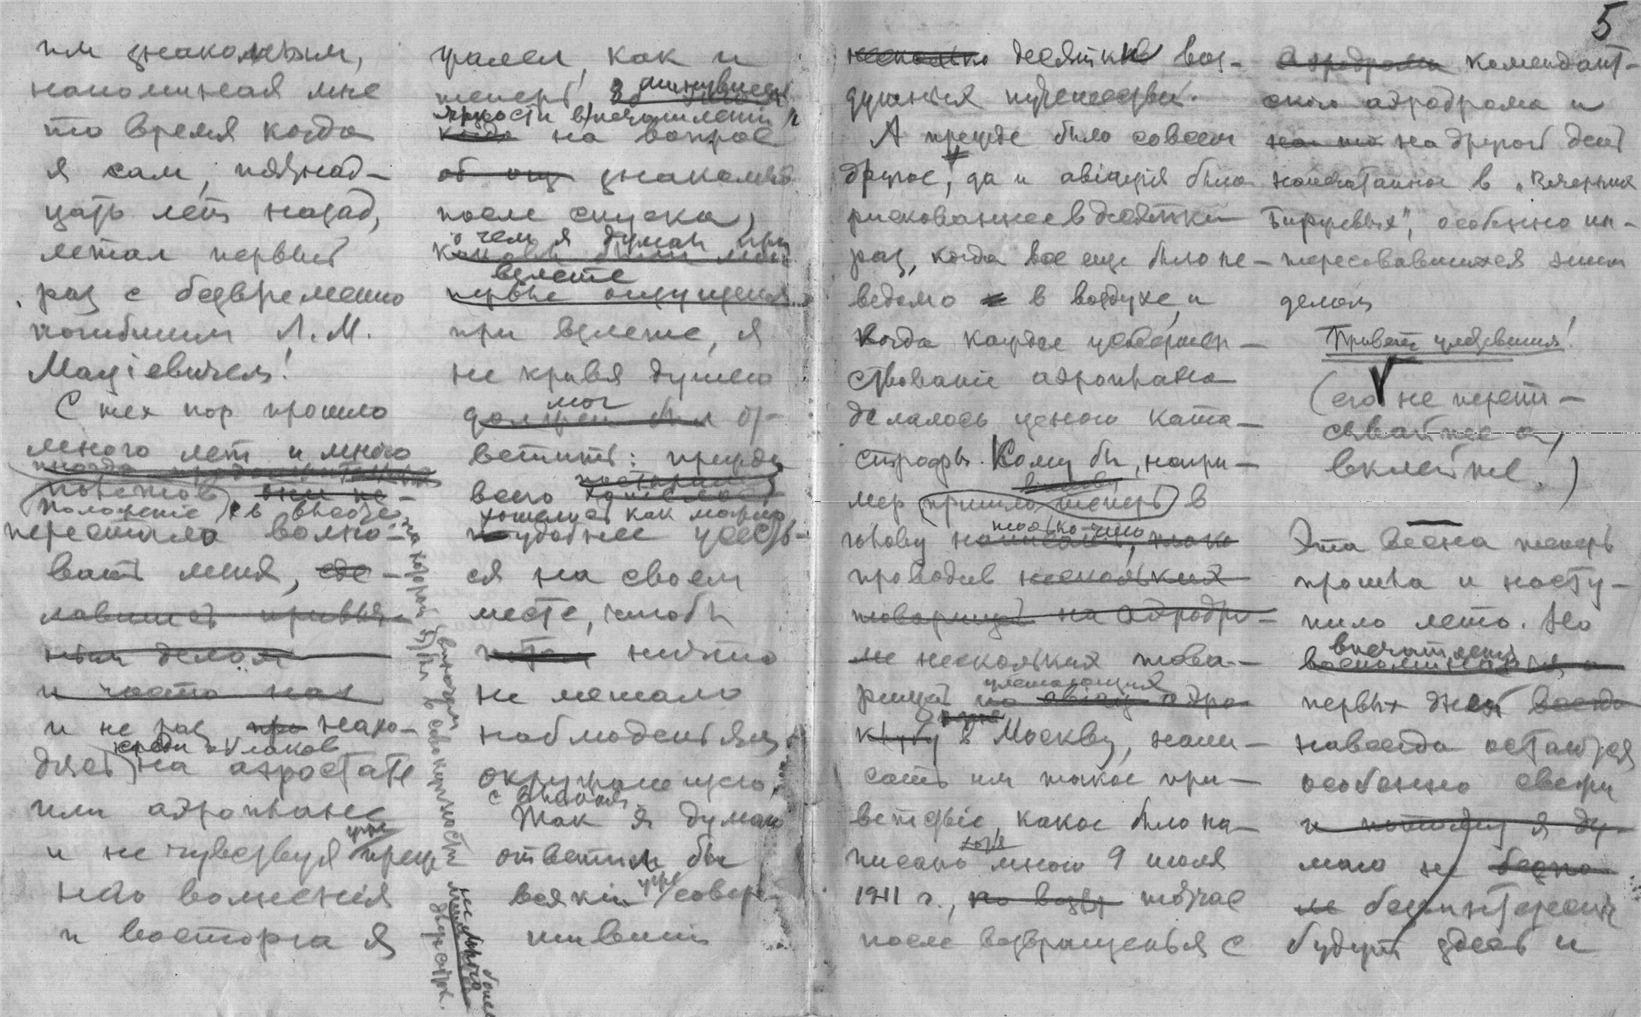 5
им знакомым,
напоминая мне
то время когда
я сам, пятнад-
цать лет назад,
летал первый
раз с безвременно
погибшим Л. М.
Мацiевичем!
С тех пор прошло
много лет и много
полетов
положенiе в
перестало волно-
вать меня, сде-
лавшись привыч-
ным делом
и часто нах
и не раз при нахо-
среди облаков
дясь на аэростате
или аэроплане
и не чувствуя уже преж
няго волненiя
и восторга я
как и
теперь
яркости впечатленiй
на вопрос
знакомых
после спуска,
о чем я думал при
взлете
первые ощущенiя
при взлете, я
не кривя душею
мог
должен был от-
ветить: прежде
всего
как можно
поудобнее усесть-
ся на своем
месте, чтобы
ничто
не мешало
наблюдать за
окружающею,
Так я думаю
ответил бы
всякiй уже совер-
шивший
несколько десятков воз-
душных путешествiй.
А прежде было совсем
другое, да и авiацiя была
рискованнее в десятки
раз, когда все еще было не-
ведомо в воздухе, и
когда каждое усовершен-
ствованiе аэроплана
делалось ценою ката-
строфы. Кому бы, напри-
мер пришло теперь в
голову только что
проводив нескольких
товарищей на аэродро-
ме нескольких това-
рищей улетающих
в Москву, напи-
сать им такое при-
ветствiе, какое было на-
писано мною 9 июля
1911 г., тотчас
после возвращенья с
аэродрома комендант-
скаго аэродрома и
на другой день
напечатанное в „Вечерних
Биржевых", особенно ин-
тересовавшихся этим
делом
Привет улетевшим!
(его не перепи-
сывайте а
вклейте!)
Эта весна теперь
прошла и насту-
пило лето. Но
впечатленiя
воспоминанiя о
первых дней всегда
навсегда остаются
особенно свежи
и потому я ду-
маю не
безынтересны
будут здесь и